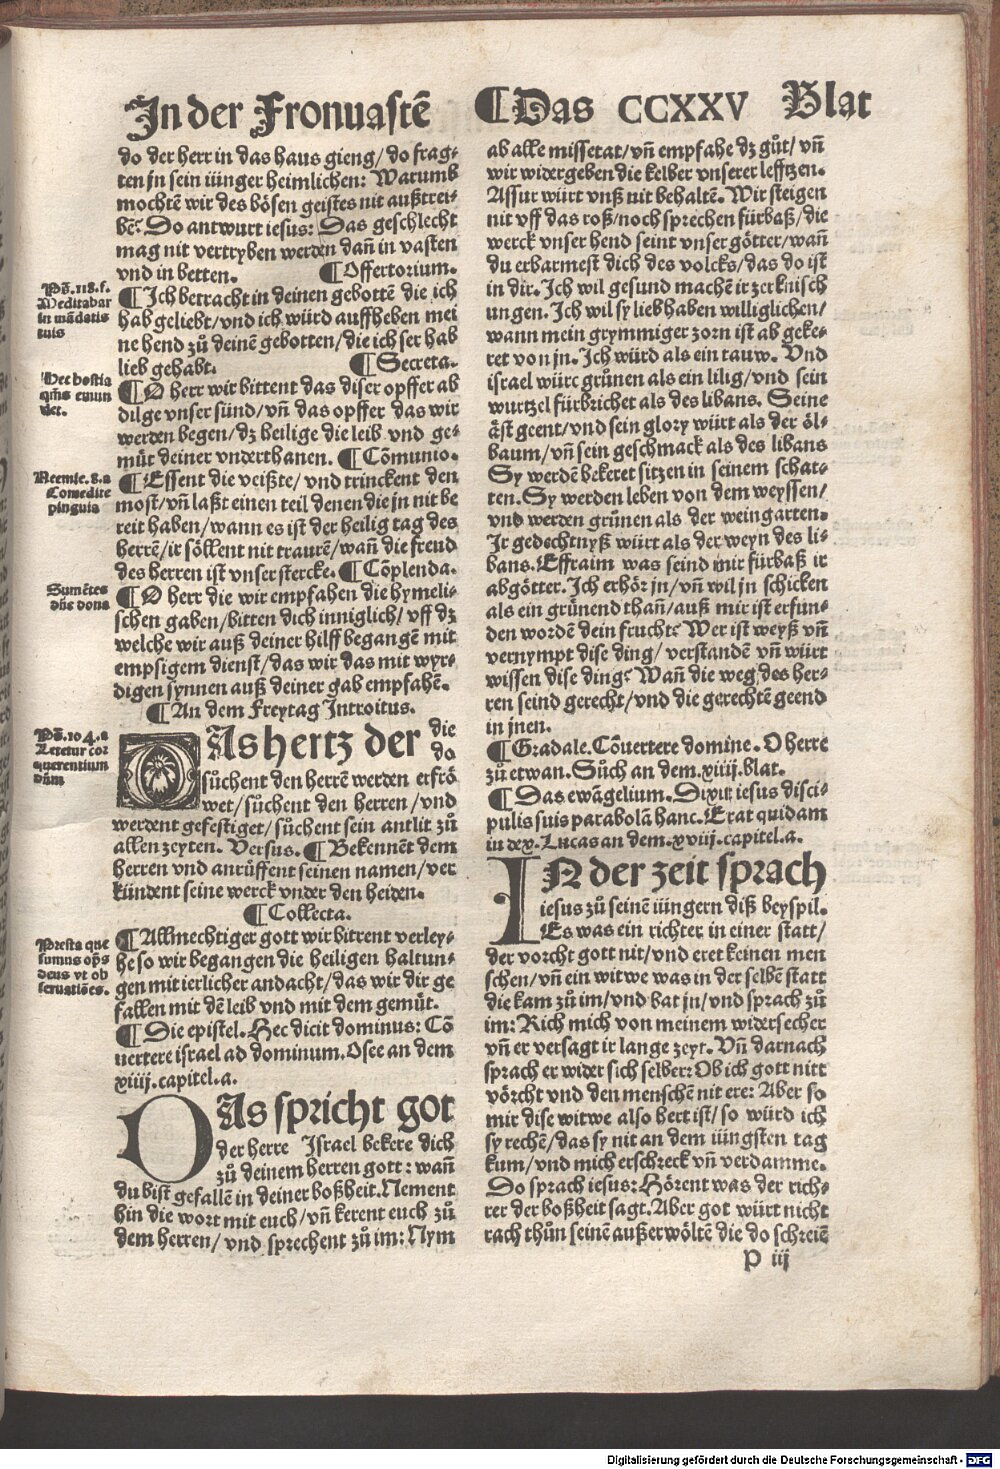 In der Fronuastē
¶Das CCXXV Blat
do der herr in das haus gieng/do frag⸗
ten jn sein iünger heimlichen: Warumb
mochtē wir des bösen geistes nit außtrei⸗
bē? Do antwurt iesus: Das geschlecht
mag nit vertryben werden dañ in vasten
vnd in betten. ¶Offertorium.
Pš. 118. f.
Meditabar
in mādatis
tuis
¶Ich betracht in deinen gebottē die ich
hab geliebt/vnd ich würd auffheben mei
ne hend zů deinē gebotten/die ich ser hab
lieb gehabt. ¶Secreta.
Hec hostia
¶O herr wir bittent das diser opffer ab
dilge vnser sünd/vñ das opffer das wir
werden begen/dz heilige die leib vnd ge⸗
müt deiner vnderthanen. ¶Cōmunio.
Neemie. 8. a
Comedite
pinguia
¶Essent die veißte/vnd trinckent den
most/vñ laßt einen teil denen die jn nit be
reit haben/wann es ist der heilig tag des
herrē/ir söllent nit traurē/wañ die freud
des herren ist vnser stercke. ¶Cōplenda.
Sumētes
dñe dona
¶O herr die wir empfahen die hymeli⸗
schen gaben/bitten dich inniglich/vff dz
welche wir auß deiner hilff begangē mit
empsigem dienst/das wir das mit wyr⸗
digen synnen auß deiner gab empfahē.
¶An dem Freytag Introitus.
Pš. 104. a
Letetur cor
querentium
dñm
DAs hertz der die
do
sůchent den herrē werden erfrö
wet/sůchent den herren/vnd
werdent gefestiget/sůchent sein antlit zů
allen zeyten. Versus. ¶Bekennēt dem
herren vnd anrüffent seinen namen/ver
kündent seine werck vnder den heiden.
¶Collecta.
Presta que
sumus ops
deus vt ob
seruatiōes.
¶Allmechtiger gott wir bittent verley⸗
he so wir begangen die heiligen haltun⸗
gen mit ierlicher andacht/das wir dir ge
fallen mit dē leib vnd mit dem gemüt.
¶Die epistel. Hec dicit dominus: Cō
uertere israel ad dominum. Osee an dem
xiiij. capitel. a.
DAs spricht got
der herre Israel bekere dich
zů deinem herren gott: wañ
du bist gefallē in deiner boßheit. Nement
hin die wort mit euch/vñ kerent euch zů
dem herren/vnd sprechent zů im: Nym
ab alle missetat/vñ empfahe dz gůt/vñ
wir widergeben die kelber vnserer lefftzen.
Assur würt vnß nit behaltē. Wir steigen
nit vff das roß/noch sprechen fürbaß/die
werck vnser hend seint vnser götter/wañ
du erbarmest dich des volcks/das do ist
in dir. Ich wil gesund machē ir zerknisch
ungen. Ich wil sy lieb haben williglichen/
wann mein grymmiger zorn ist ab geke⸗
ret von jn. Ich würd als ein tauw. Vnd
israel würt grünen als ein lilig/vnd sein
wurtzel fürbrichet als des libans. Seine
äst geent/vnd sein glory würt als der öl⸗
baum/vñ sein geschmack als des libans
Sy werdē bekeret sitzen in seinem schat⸗
ten. Sy werden leben von dem weyssen/
vnd werden grünen als der weingarten.
Ir gedechtnyß würt als der weyn des li⸗
bans. Effraim was seind mir fürbaß ir
abgötter. Ich erhör jn/vñ wil jn schicken
als ein grünend thañ/auß mir ist erfun⸗
den wordē dein frucht? Wer ist weyß vñ
vernympt dise ding/verstandē vñ würt
wissen dise ding? Wañ die weg des her⸗
ren seind gerecht/vnd die gerechtē geend
in jnen.
¶Gradale. Cōuertere domine. O herre
zů etwan. Sůch an dem. xiiij. blat.
¶Das ewāgelium. Dixit iesus disci⸗
pulis suis parabolā hanc. Erat quidam
iudex. Lucas an dem. xviij. capitel. a.
IN der zeit sprach
iesus zů seinē iüngern diß beyspil.
Es was ein richter in einer statt/
der vorcht gott nit/vnd eret keinen men
schen/vñ ein witwe was in der selbē statt
die kam zů im/vnd bat jn/vnd sprach zů
im: Rich mich von meinem widersecher
vñ er versagt ir lange zeyt. Vñ darnach
sprach er wider sich selber: Ob ich gott nitt
vörcht vnd den menschē nit ere: Aber so
mir dise witwe also hert ist/so würd ich
sy rechē/das sy nit an dem iüngsten tag
kum/vnd mich erschreck vñ verdamme.
Do sprach iesus: Hörent was der rich⸗
ter der boßheit sagt. Aber got würt nicht
rach thůn seinē außerwöltē die do schreiē
P iij
Digitalisierung gefördert durch die Deutsche Forschungsgemeinschaft - DFG